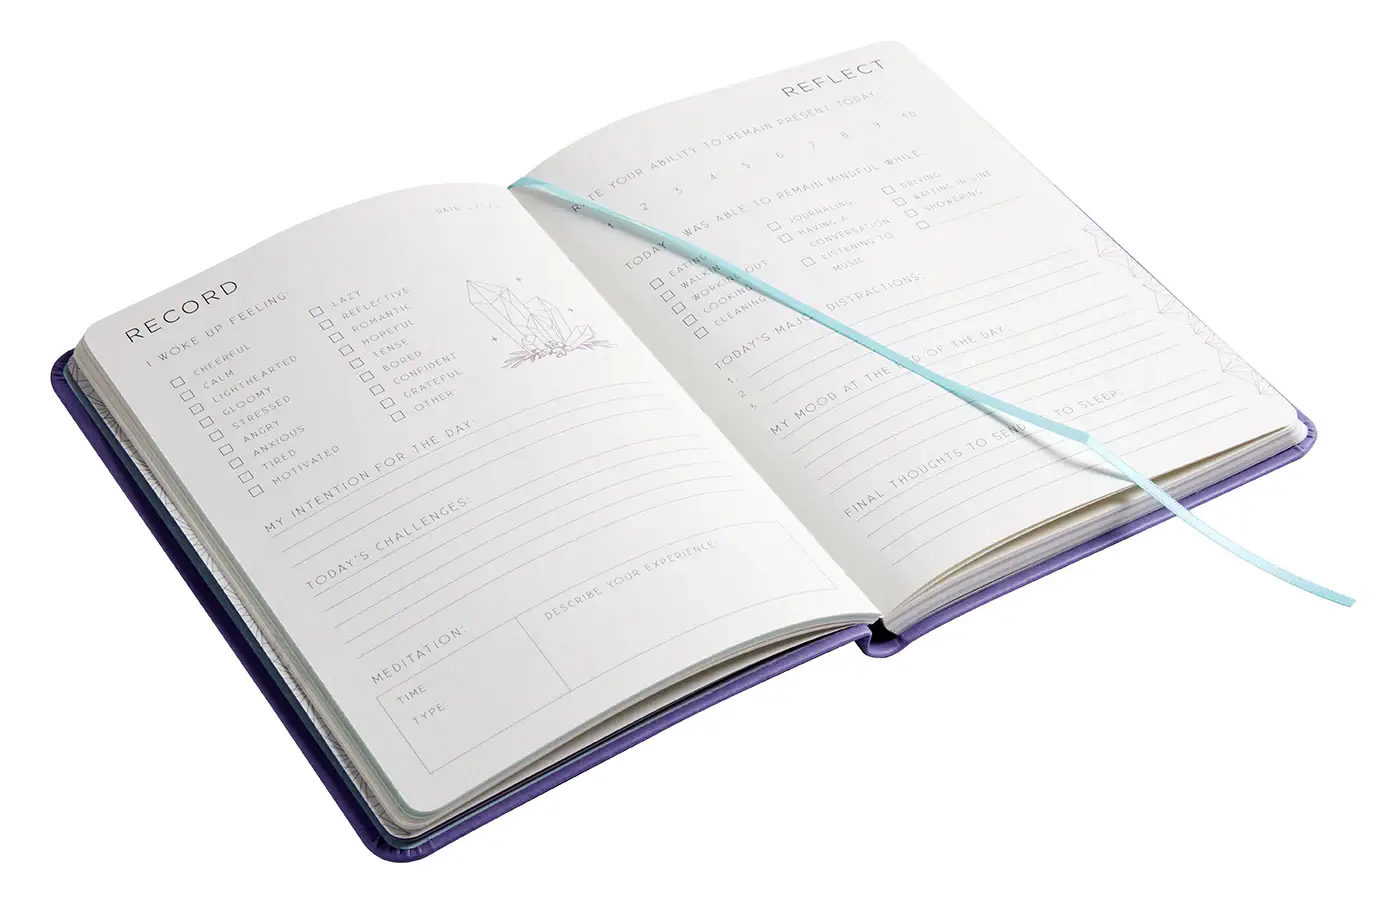 DATE
RECORD
I WOKE UP FEELING:
CHEERFUL
CALM
LIGHTHEARTED
GLOOMY
STRESSED
ANGRY
ANXIOUS
TIRED
MOTIVATED
LAZY
REFLECTIVE
ROMANTIC
HOPEFUL
TENSE
BORED
CONFIDENT
GRATEFUL
OTHER
MY INTENTION FOR THE DAY:
TODAY'S CHALLENGES:
MEDITATION:
TIME
TYPE:
DESCRIBE YOUR EXPERIENCE:
REFLECT
RATE YOUR ABILITY TO REMAIN PRESENT TODAY:
1 2 3 4 5 6 7 8 9 10
TODAY WAS ABLE TO REMAIN MINDFUL WHILE
EATING
WALKIN
WORKING OUT
COOKING
CLEANING
JOURNALING
HAVING A
CONVERSATION
LISTENING TO
MUSIC
DRIVING
WAITING IN LINE
SHOWERING
TODAY'S MAJO DISTRACTIONS:
1.
2.
3.
MY MOOD AT THE END OF THE DAY:
FINAL THOUGHTS TO SEND TO SLEEP: